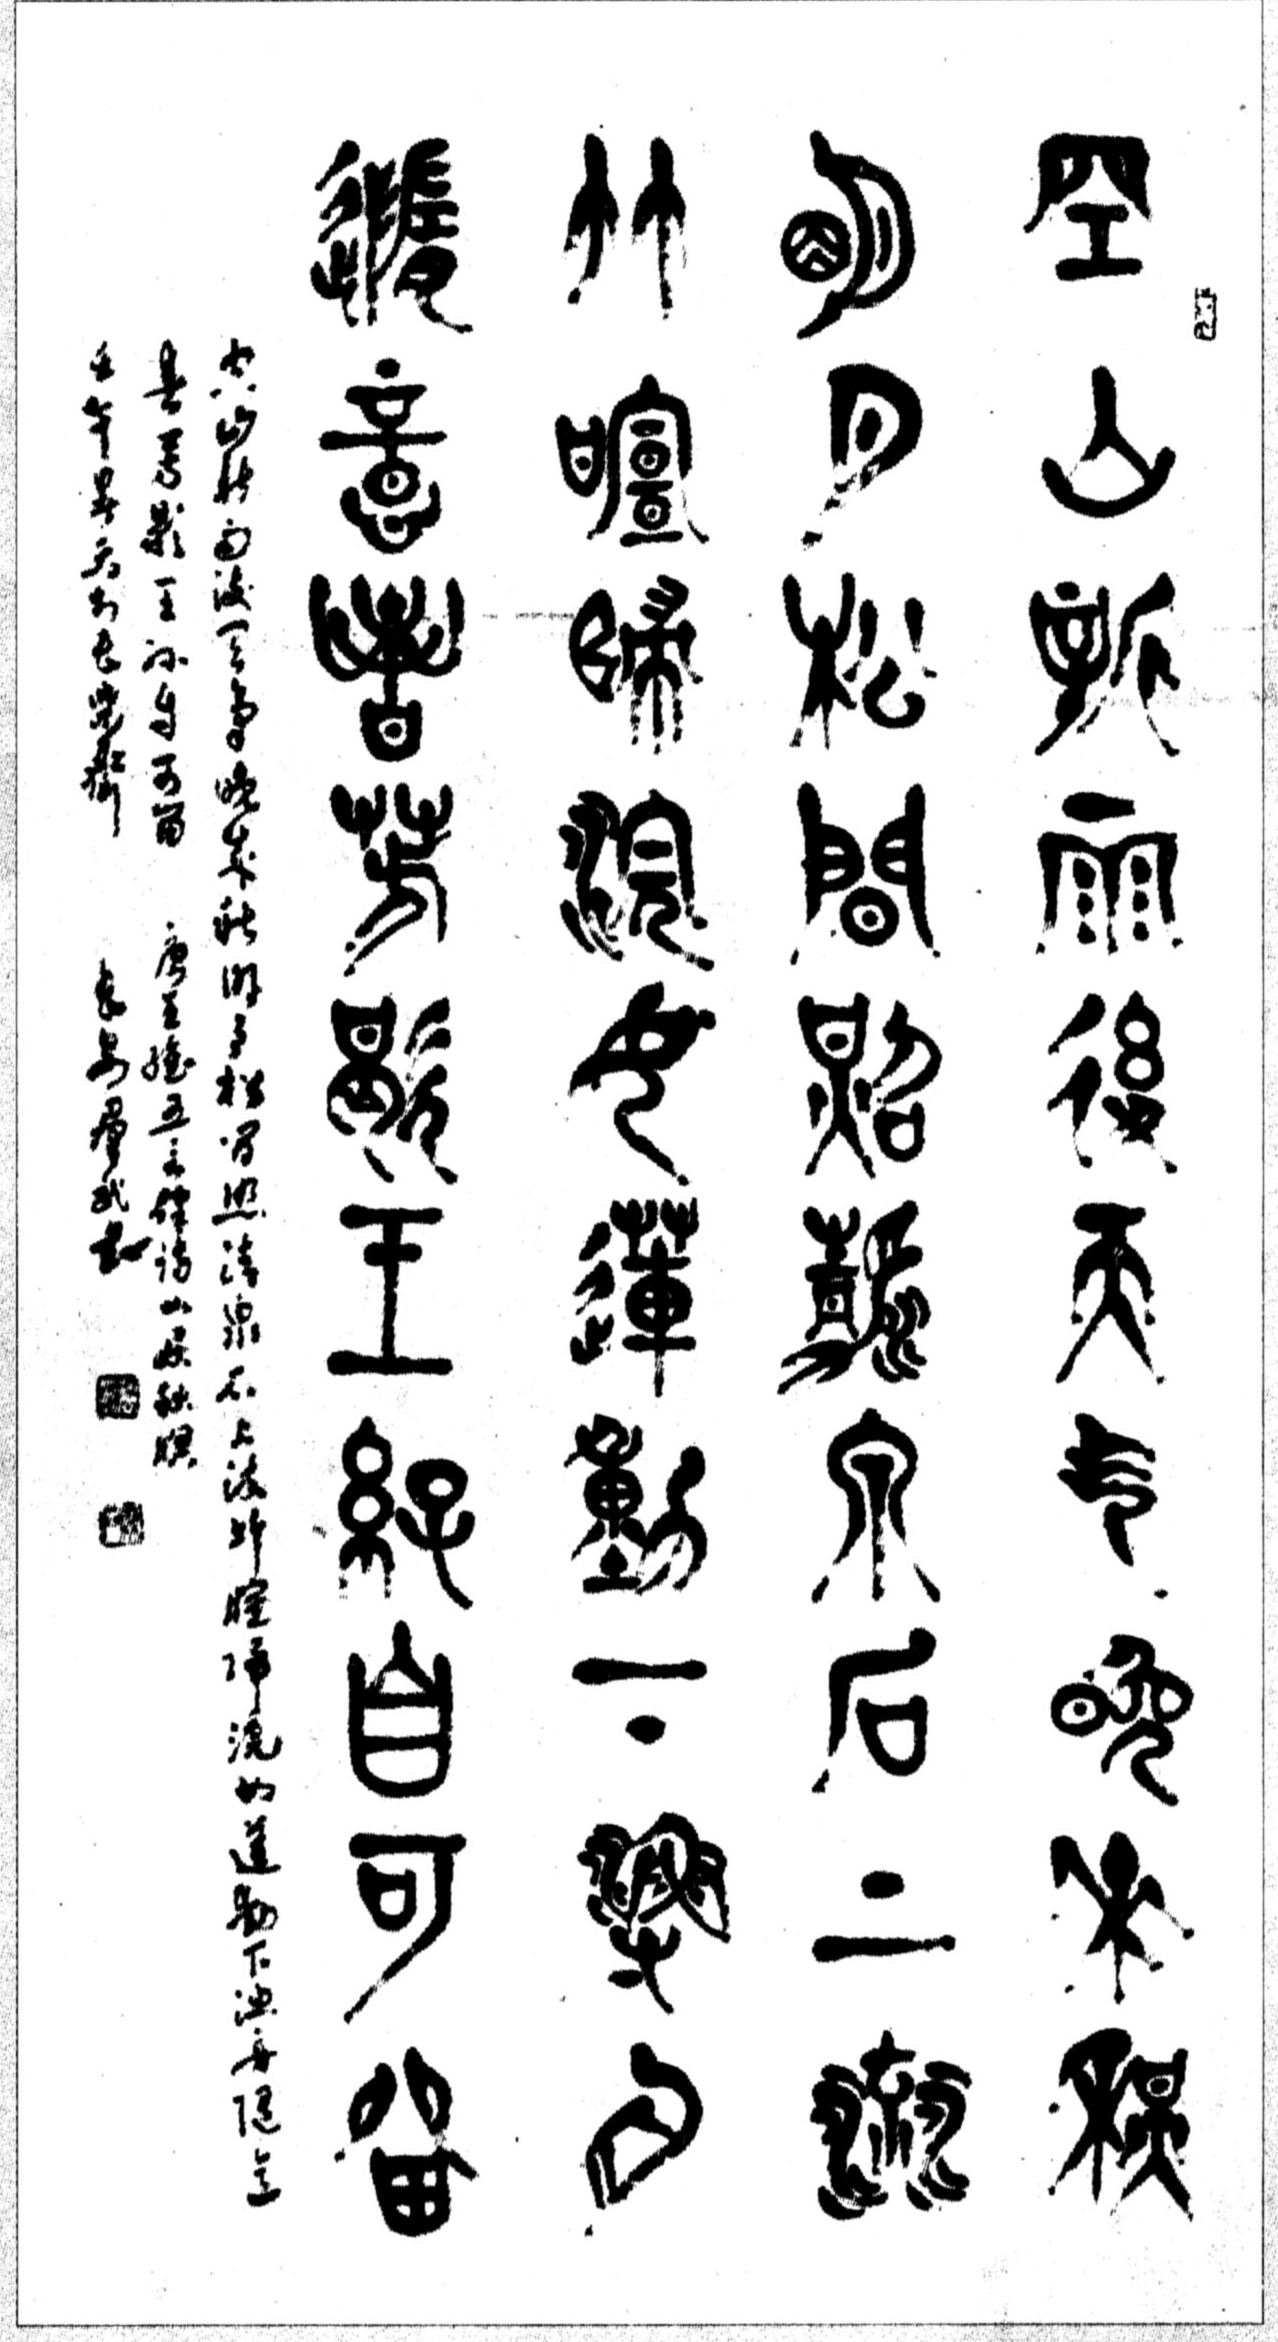 空山新雨後天气晚來秋
明月松間照清泉石上流
竹喧歸浣女蓮動下漁舟
隨意春芳歇王孫自可留
空山新雨後天氣晚來秋明月松間照清泉石上流竹喧歸浣女蓮動下漁舟隨意
春芳歇王孫自可留 唐王維五言律詩山居秋暝
壬午年